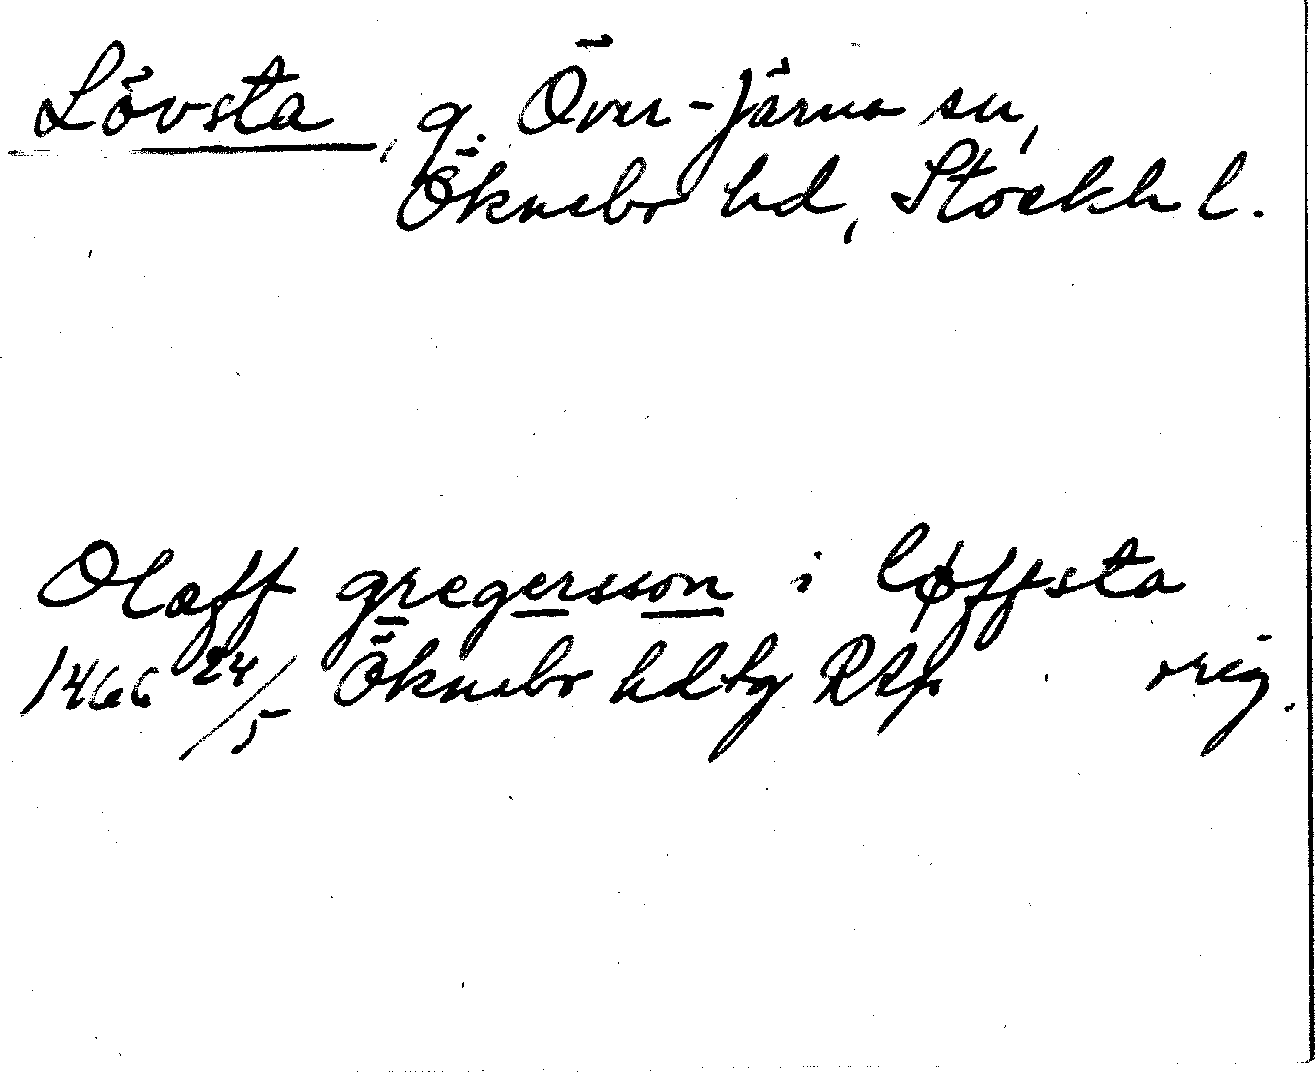 Lövsta, g. Över-Järna sn,
Öknebo hd, Stockh l.
Olaff gregersson i løffsta
1466 24/5 Öknebo hdtg Rap orig.